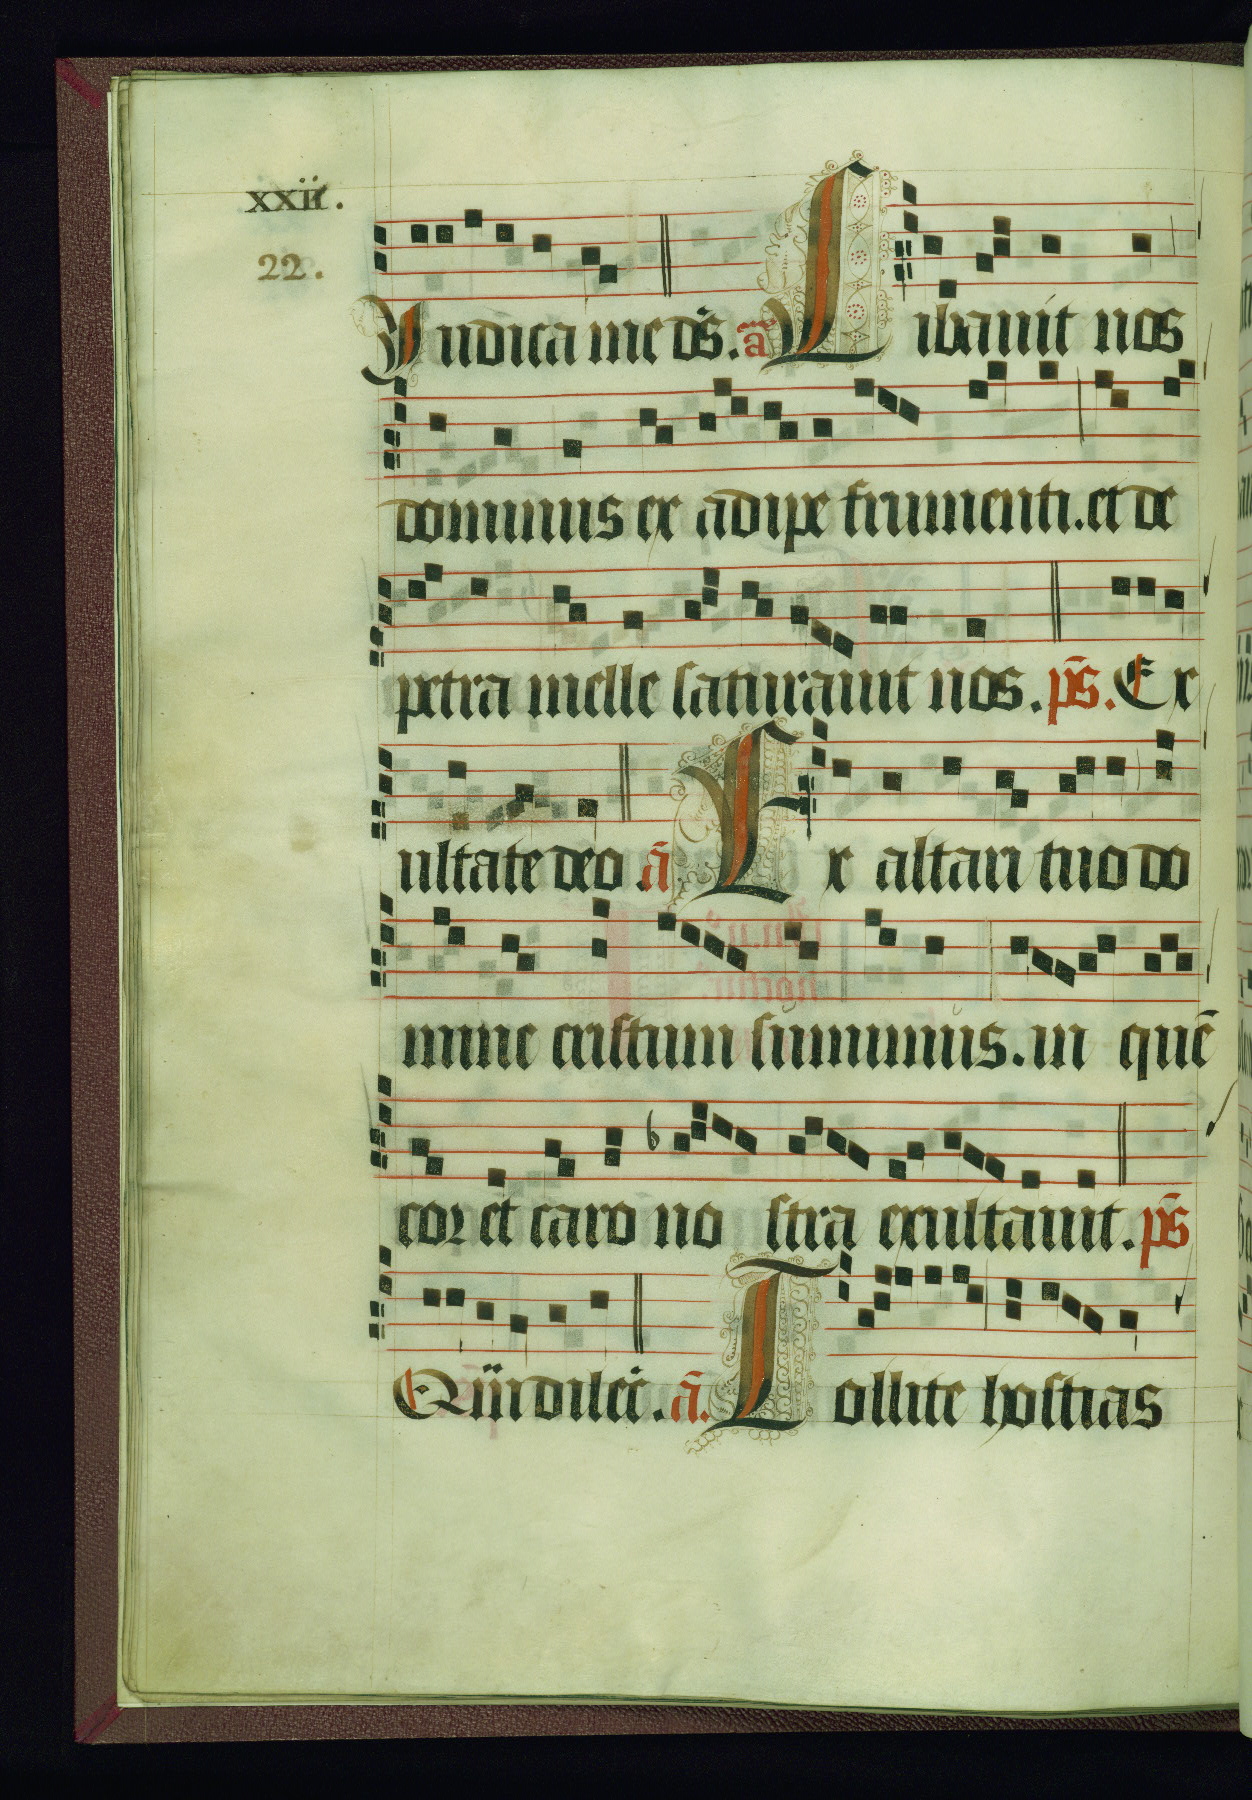 xxii.
22.
Iudica me ds̄. a Libauit nos
dominus ex adipe frumenti. et de
petra melle saturauit nos. ps̄. Ex
ultate deo ā Ex altari tuo do
mine cristum sumimus. in quē
cor et caro no stra exultauit. ps̄
Quā dilc̄ć. ā. Tollite hostias